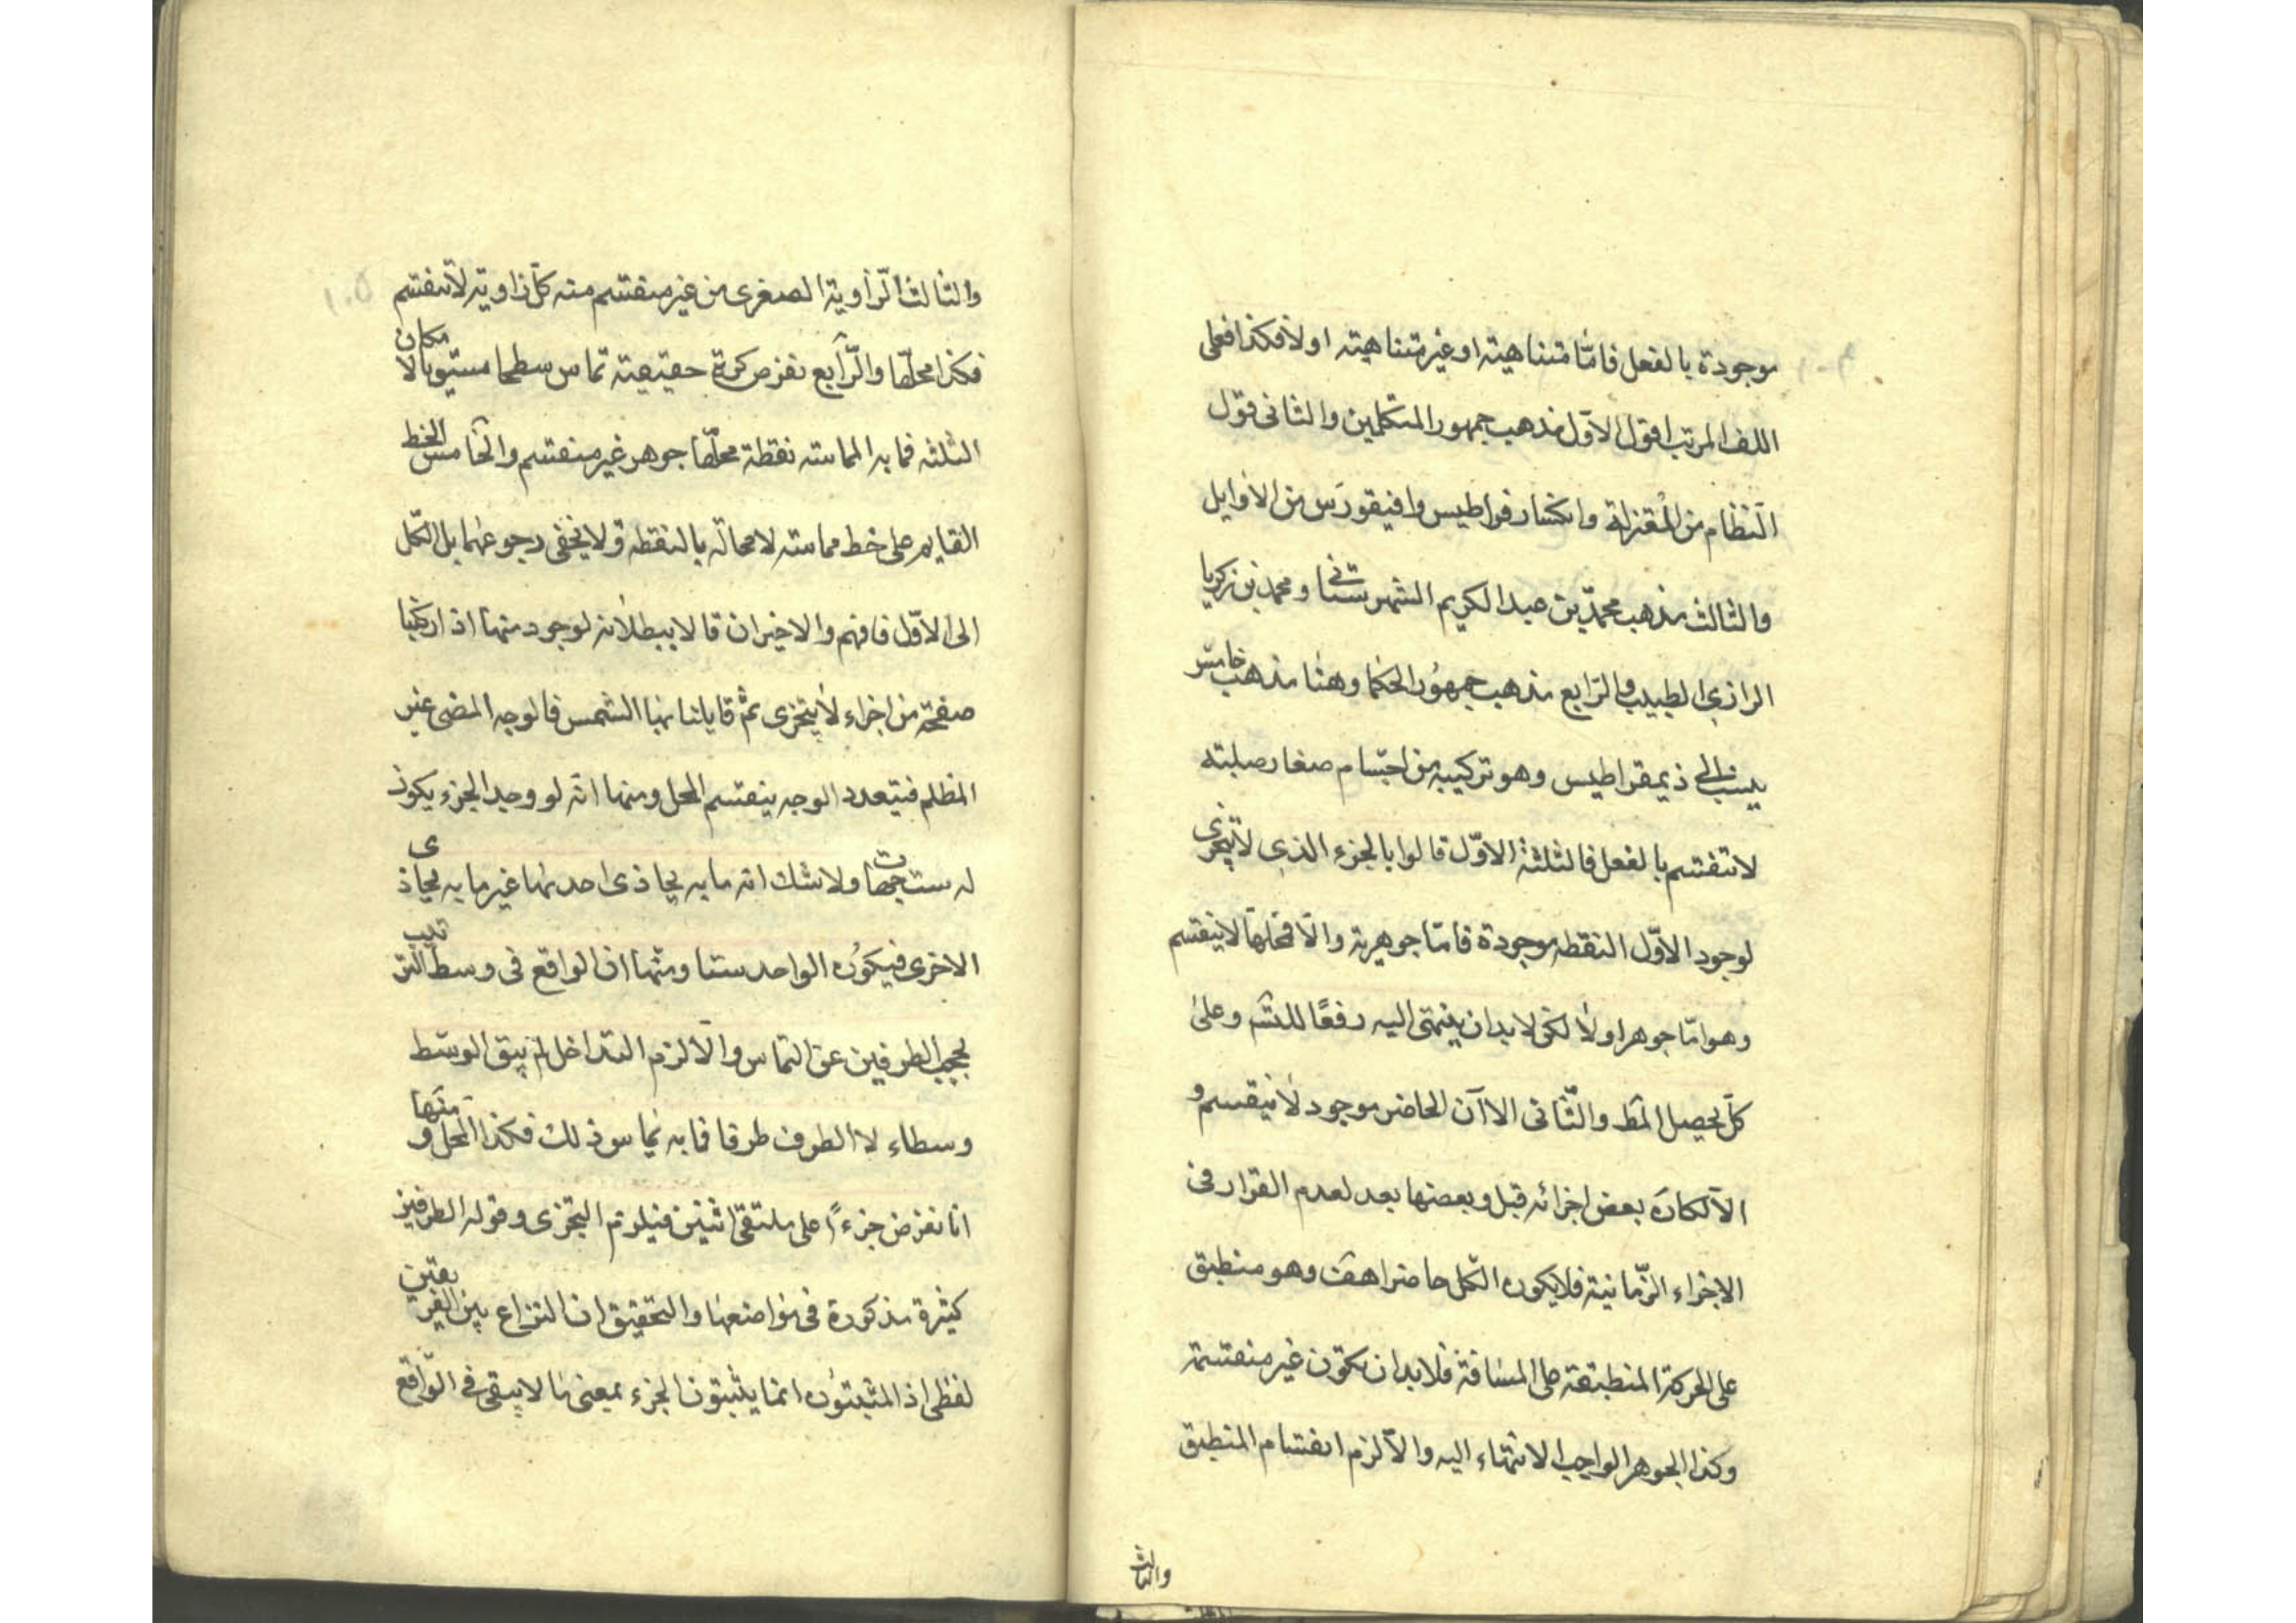 موجودة بالفعل فامّا متناهية او غير متناهية اولا فكذا فعلى
اللف المرتب اقول الاول مذهب جمهور المتكلمين والثانى قول
النظام من المعتزلة وانكسار فواطيس وافيقورس من الاوايل
والثالث مذهب محمد بن عبد الكريم الشهرستانى ومحمد بن زكريا
الرازى الطبيب والرابع مذهب جمهور الحكما وهنا مذهب خامس
ينسب الى ذيمقراطيس وهو تركيبه من اجسام صغار صلبة
لا تنقسم بالفعل فالثلثة الاوّل قالوا بالجزء الذى لا يتجزى
لوجود الاوّل النقطه موجودة فامّا جوهرية والا فمحلها لا ينقسم
وهو امّا جوهر اولا لكن لا بد ان ينتهى اليه دفعًا للتسّـ وعلى
كل يحصل المط والثّانى الاآن الحاضر موجود لا ينقسم و
الا لكان بعض اجزائه قبل وبعضها بعد لعدم القرار فى
الاجزاء الزّمانية فلا يكون الكل حاضرا هف وهو منطبق
على الحركة المنطبقة على المسافة فلا بد ان تكون غير منقسمة
وكذا الجوهر الواجب الانتهاء اليه والا لزم انقسام المنطبق
والثالث
والثالث الزاوية الصغرى من غير منقسم منه كل زاوية لا تنقسم
فكذا محلها والرّابع نفرض كرة حقيقية تماس سطحا مستويا لا مكان
الثلثه فما به المماسة نقطة محلها جوهر غير منقسم والخامس الخط
القايم على خط مماسته لا محالة بالنقطه ولا يخفى رجوعهما بل الكل
الى الاوّل فافهم والاخيران قالا ببطلانه لوجود منها اذا ركبنا
صفحة من اجزاء لا يتجزى ثم قابلنا بها الشمس فالوجه المضى غير
المظلم فيتعدد الوجه ينقسم المحل ومنها انه لو وجد الجزء يكون
له ست جهات ولا شك انه ما به يحاذى احديها غير ما به يحاذى
الاخرى فيكون الواحد ستا ومنها ان الواقع فى وسط الترتيب
يحجب الطرفين عن التماس والا لزم التداخل لم يبق الوسط
وسطاء لا الطرف طرفا فما به يماس ذلك فكذا المحل و منها
انا نفرض جزءًا على ملتقى اثنين فيلزم التجزى وقوله الطرفين
كثيرة مذكورة فى مواضعها والتحقيق ان النزاع بين الفريقين
لفظى اذ المثبتون انما يثبتون الجزء بمعنى ما لا يبقى فى الواقع